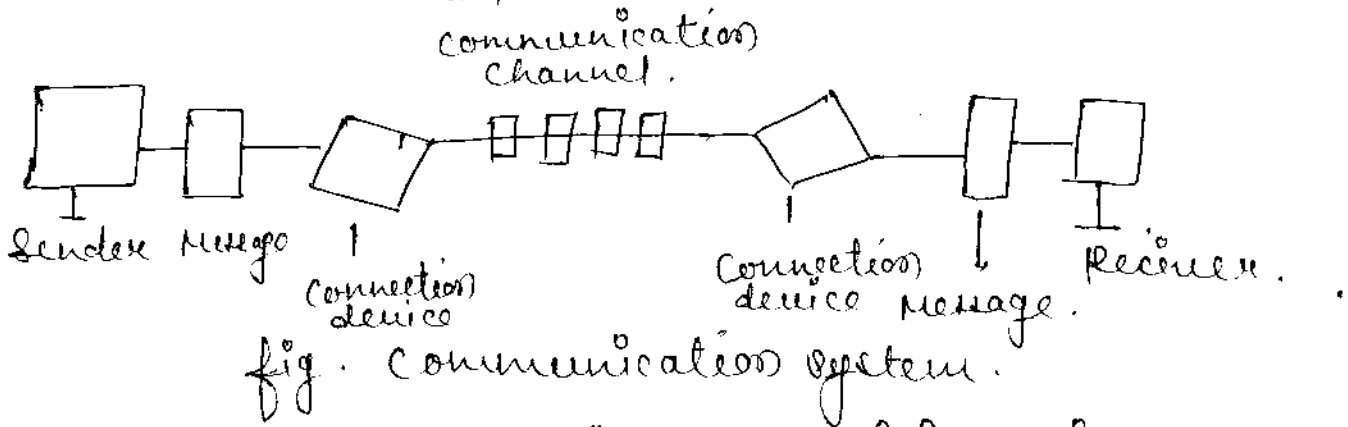 communication
channel.
Sender Message
connection
device
connection
device Message.
Reciever.
fig. Communication system.